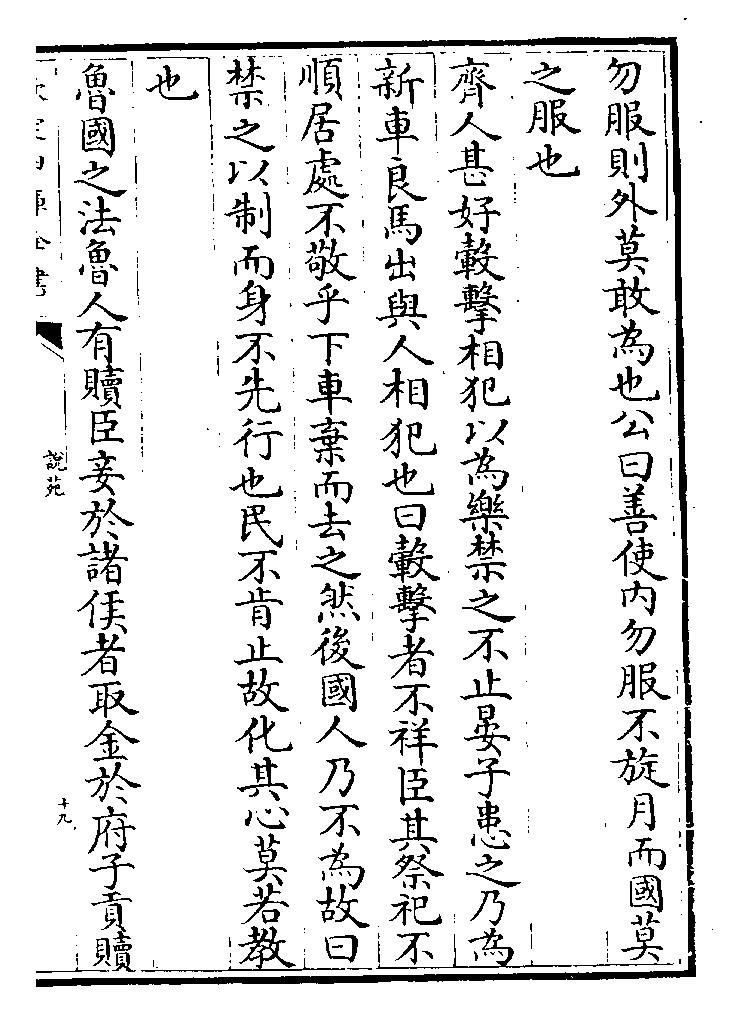 勿服則外莫敢為也公曰善使内勿服不旋月而國莫
之服也
齊人甚好轂擊相犯以為樂禁之不止晏子患之乃為
新車良馬出與人相犯也曰轂擊者不祥臣其祭祀不
順居處不敬乎下車棄而去之然後國人乃不為故曰
禁之以制而身不先行也民不肯止故化其心莫若教
也
魯國之法魯人有贖臣妾於諸侯者取金於府子貢贖
欽定四庫全書
說苑
十九